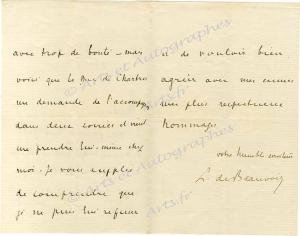 avec trop de bonté – mais
voici que le Duc de Chartres
me demande de l'accompagner
dans deux courses et veut
me prendre lui-même chez
moi. Je vous supplie
de comprendre que
je ne puis lui refuser
et de vouloir bien
agréer avec mes excuses
mes plus respectueux
hommages
votre humble serviteur
L. de Beauvoir
© Arts et Autographes
Arts.fr